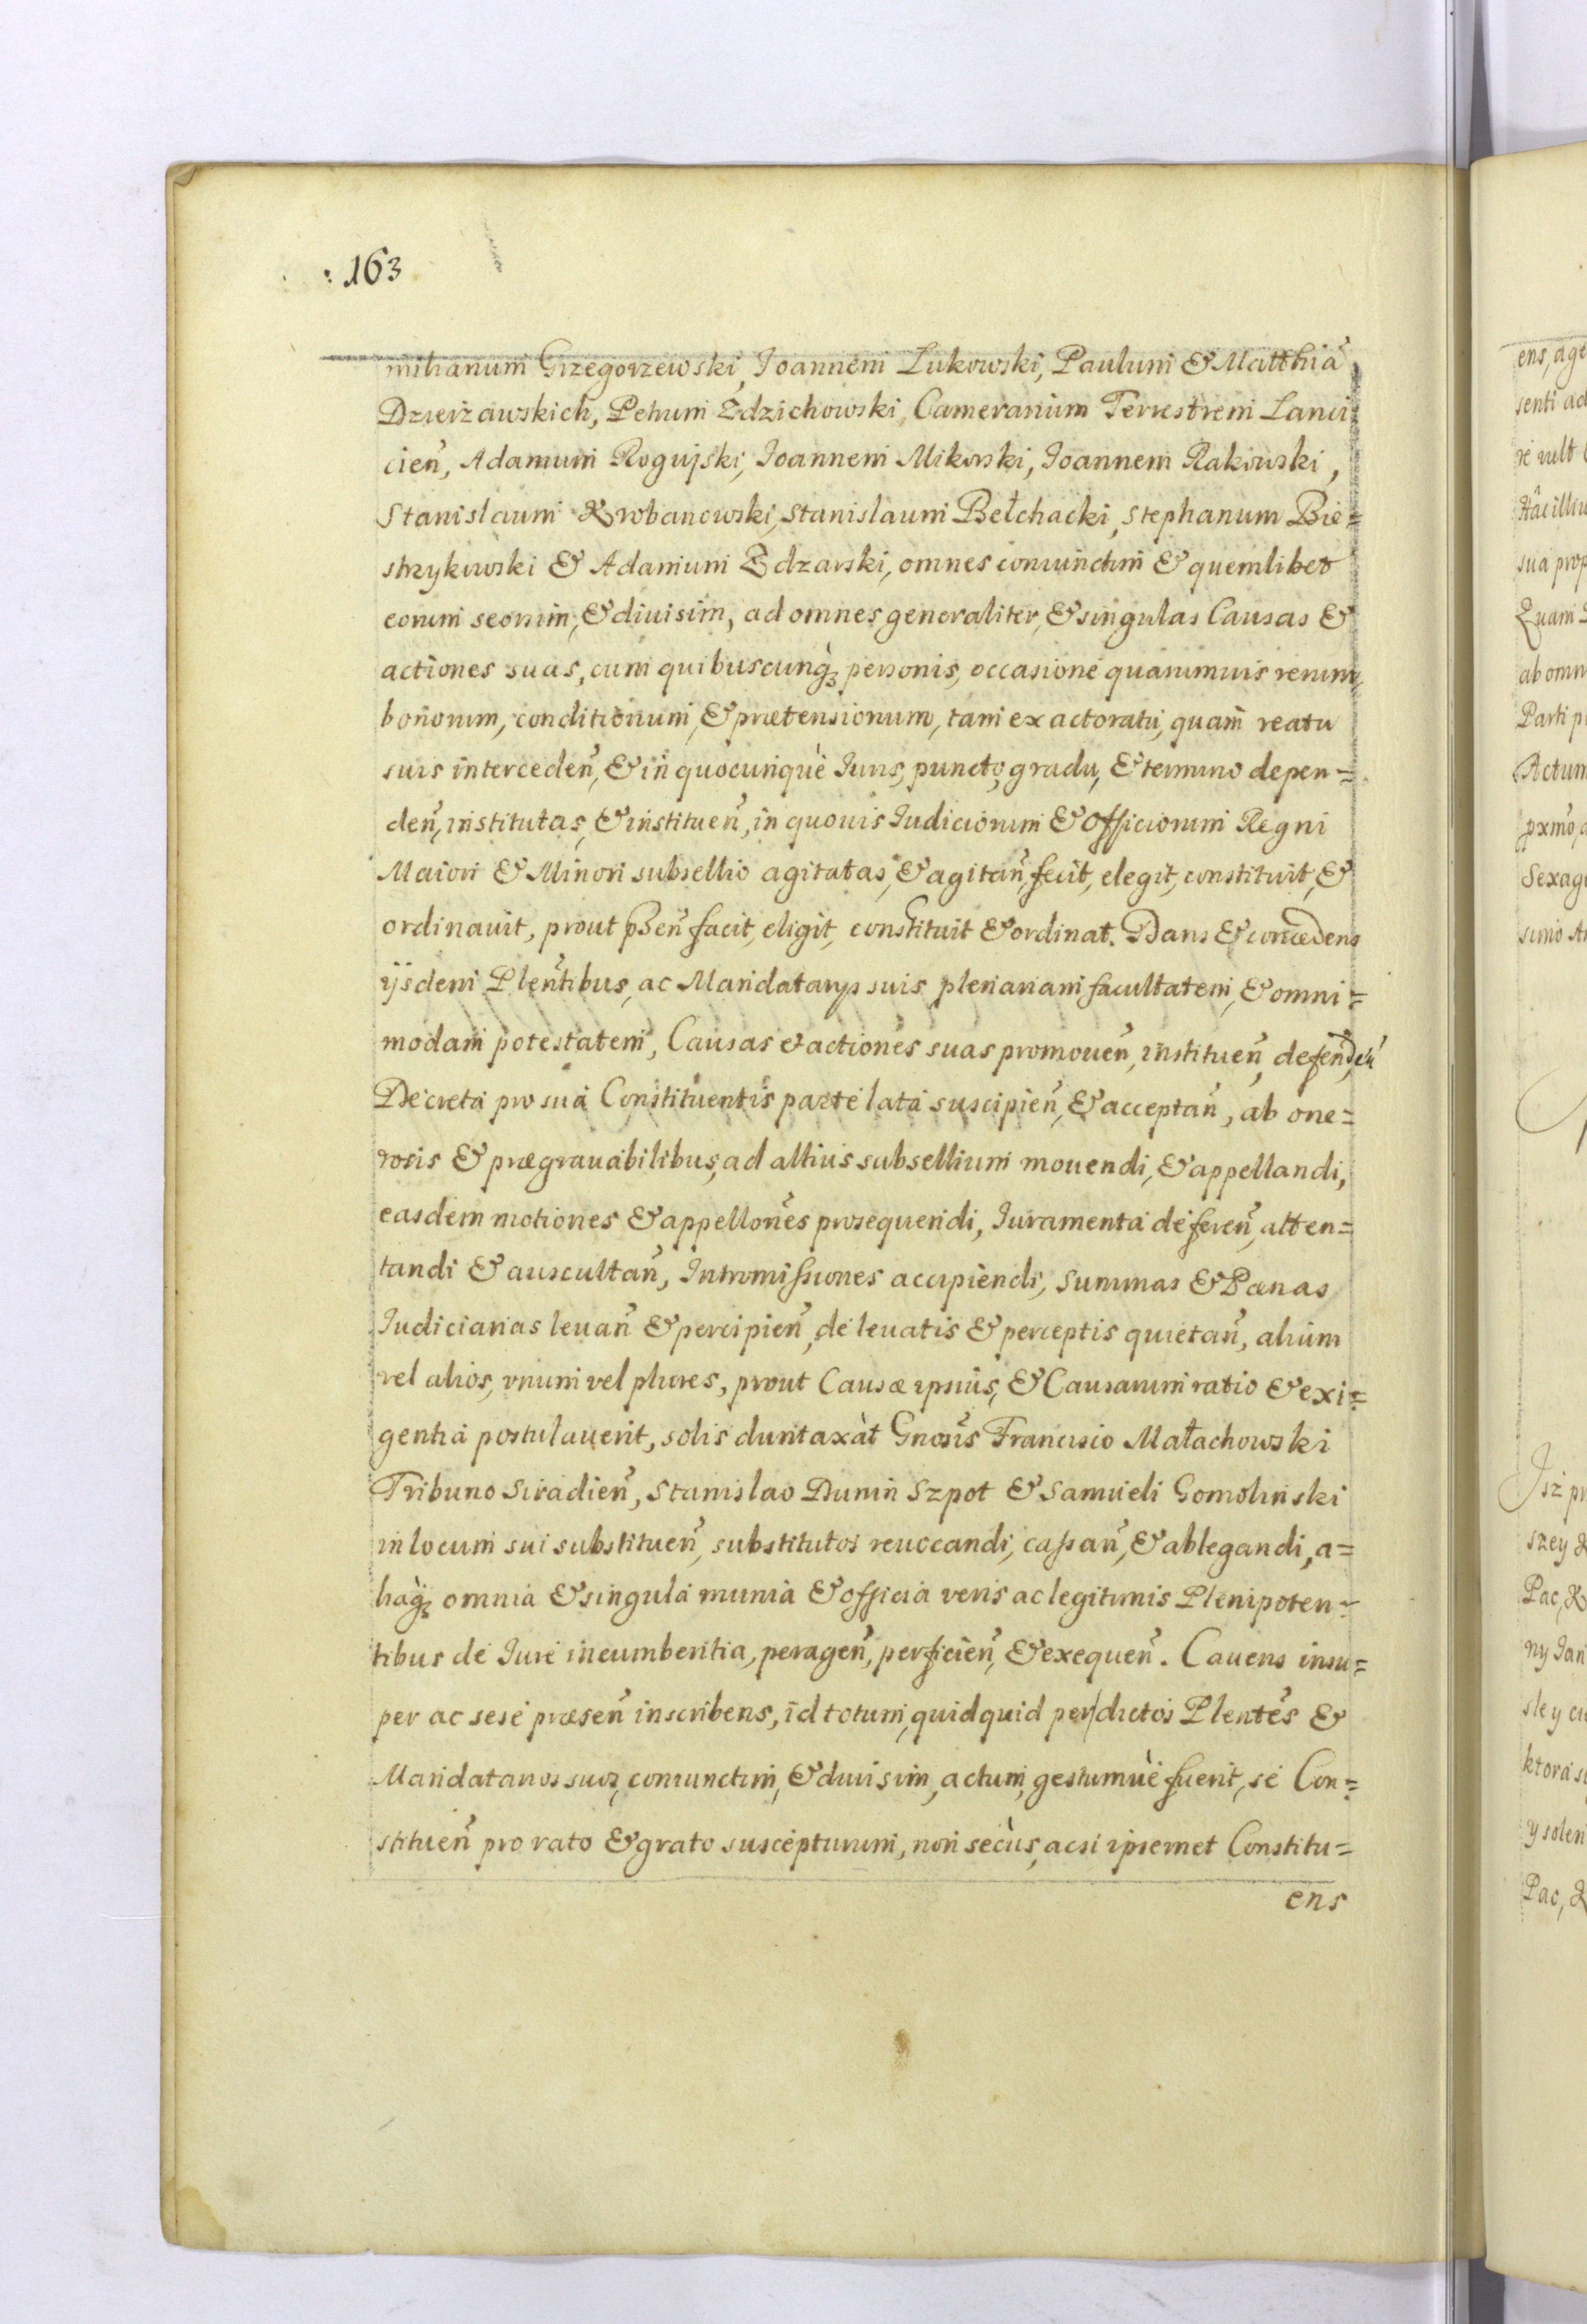 163
milianum Grzegorzewski, Joannem Lukowski, Paulum & Matthiã
Dzierżawskich, Petrum Zdzichowski, Camerarium Terrestrem Lanci
cień, Adamum Rogujski, Joannem Mikorski, Joannem Rakowski,
Stanislaum Krobanowski, Stanislaum Bełchacki, Stephanum Bie=
strzykowski & Adamum Zdzarski, omnes coniunctim & quemlibet
eorum seorsim, & diuisim, ad omnes generaliter, & singulas Causas &
actiones suas, cum quibuscunq; personis, occasione quarumuis rerum,
bonorum, conditionum, & prætensionum, tam ex actoratu, quam reatu
suis interceden̄, & in quocunquè Juris, puncto, gradu, & termino depen=
den̄, institutas, & instituen̄, in quouis Judiciorum & Officiorum Regni
Maiori & Minori subsellio agitatas, & agitan̄, fecit, elegit, constituit, &
ordinauit, prout pßen̄ facit, eligit, constituit & ordinat. Dans & concedens
ijsdem Plen̄tibus, ac Mandatarys suis plenariam facultatem, & omni=
modam potestatem, Causas & actiones suas promouen̄, instituen̄, defenden̄
Decreta pro sua Constituentis parte lata suscipien̄, & acceptan̄, ab one=
rosis & prægrauabilibus, ad altius subsellium mouendi, & appellandi,
easdem motiones & appellõnes prosequendi, Juramenta deferen̄, atten=
tandi & auscultan̄, Intromissiones accipiendi, Summas & Pœnas
Judiciarias leuan̄ & percipien̄, de leuatis & perceptis quietan̄, alium
vel alios, vnum vel plures, prout Causæ ipsius, & Causarum ratio & exi=
gentia postulauerit, solis duntaxàt Gnosis Francisco Małachowski
Tribuno Siradien̄, Stanislao Dunin Szpot & Samueli Gomolinski
in locum sui substituen̄, substitutos reuocandi, cassan̄, & ablegandi, a=
liaq; omnia & singula munia & officia veris ac legitimis Plenipoten=
tibus de Jure incumbentia, peragen̄, perficien̄, & exequen̄. Cauens insu=
per ac sese præsen̄ inscribens, id totum, quidquid per dictos Plentes &
Mandatarios suos, coniunctim, & diuisim, actum, gestumuè fuerit, se Con=
stituen̄ pro rato & grato suscepturum, non secùs, acsi ipsemet Constitu=
ens